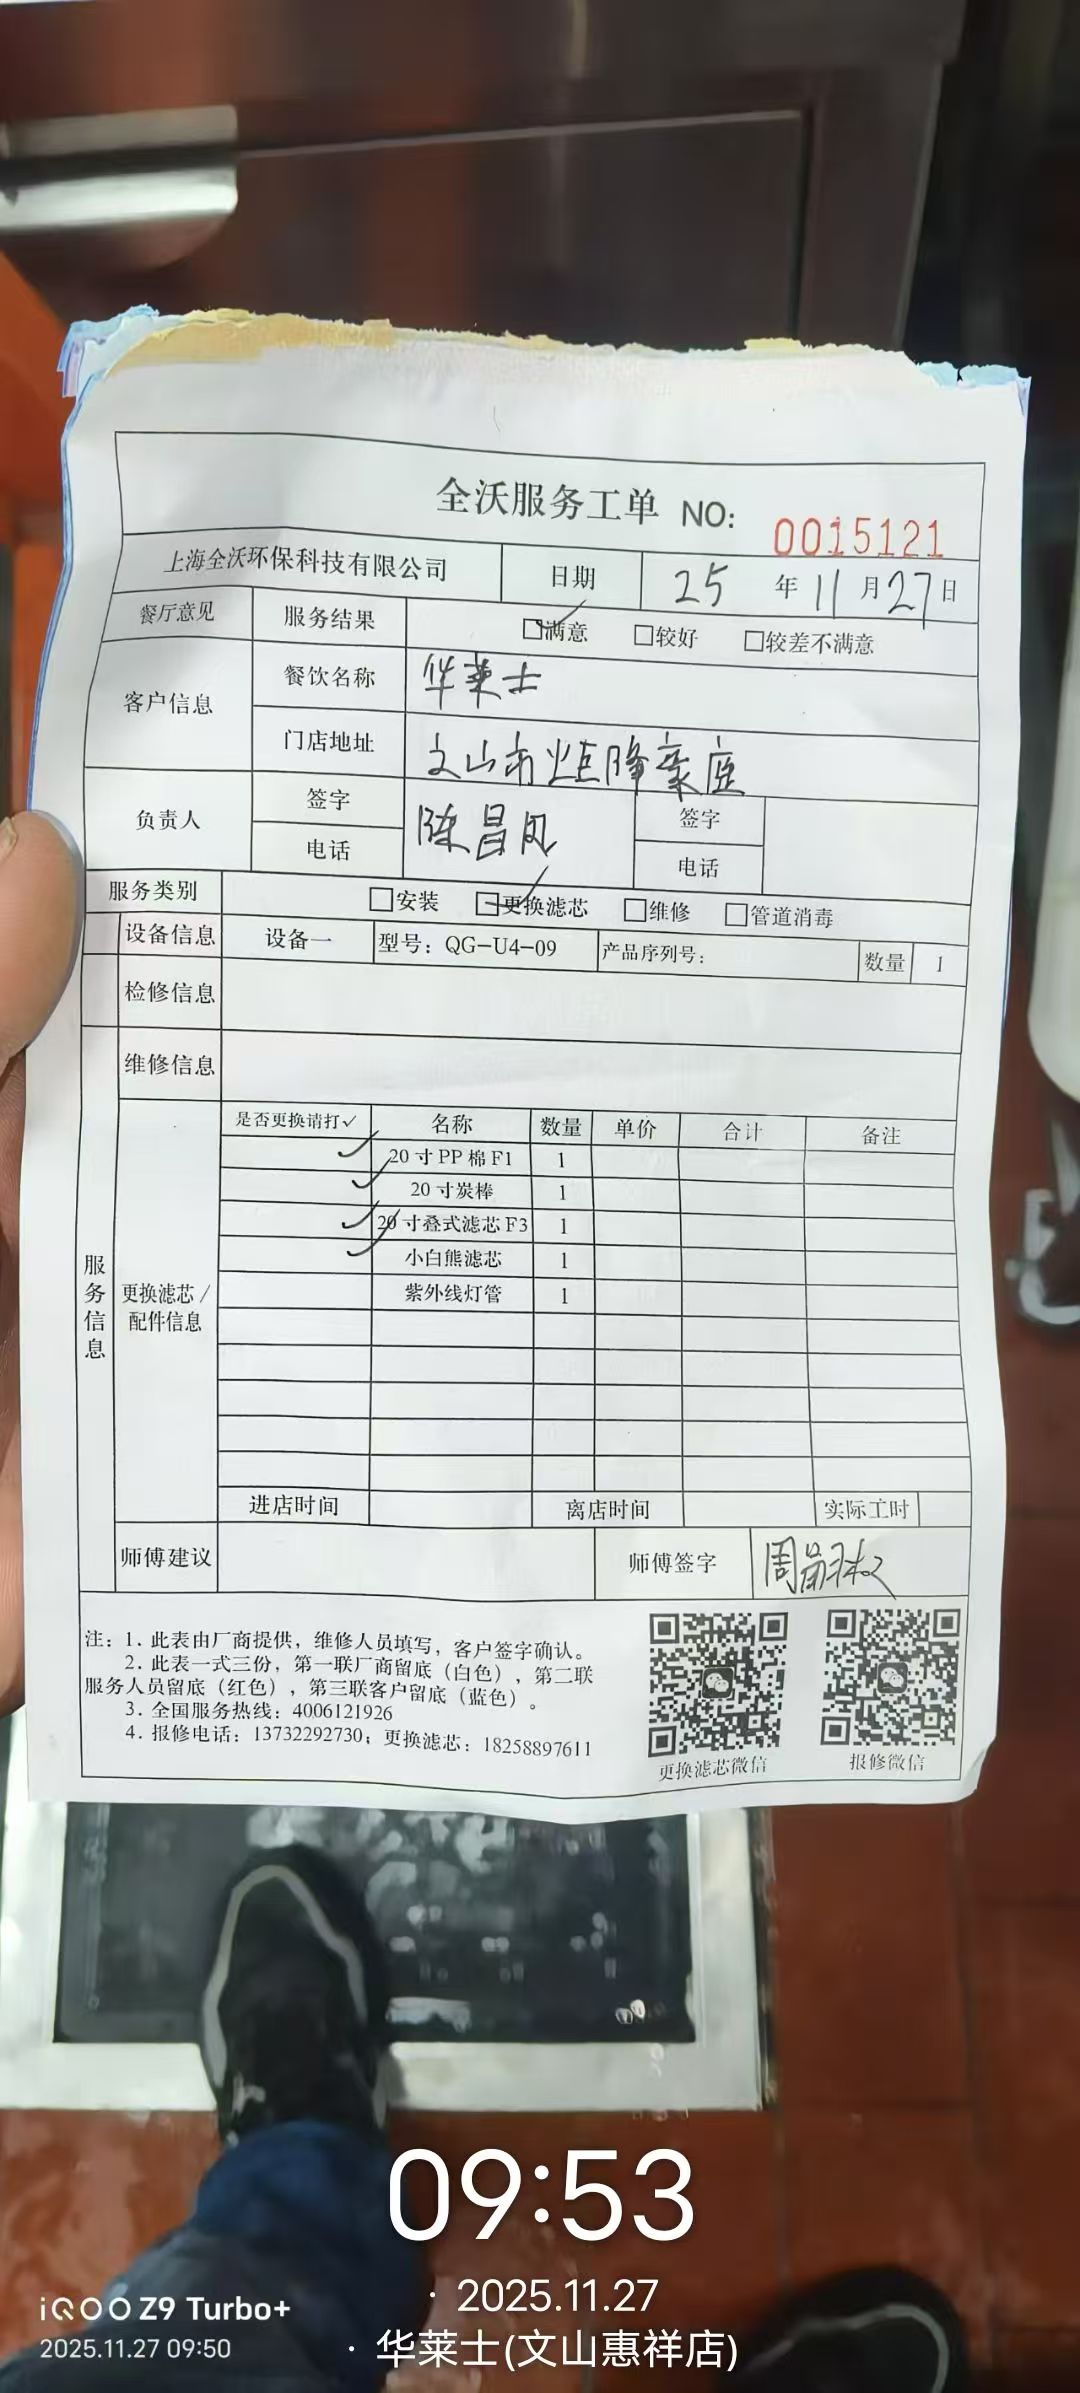 全沃服务工单 NO: 0015121
上海全沃环保科技有限公司 日期 25 年 11 月 27 日
餐厅意见 服务结果 ☑满意 □较好 □较差不满意
客户信息 餐饮名称 华莱士
门店地址 文山市炬隆豪庭
负责人 签字 陈昌凤 签字
电话 电话
服务类别 □安装 ☑更换滤芯 □维修 □管道消毒
设备信息 设备一 型号：QG-U4-09 产品序列号： 数量 1
检修信息
维修信息
服务信息
更换滤芯/配件信息
是否更换请打✓ 名称 数量 单价 合计 备注
✓ 20寸PP棉F1 1
✓ 20寸炭棒 1
✓ 20寸叠式滤芯F3 1
✓ 小白熊滤芯 1
紫外线灯管 1
进店时间 离店时间 实际工时
师傅建议 师傅签字 周
注：1. 此表由厂商提供，维修人员填写，客户签字确认。
2. 此表一式三份，第一联厂商留底（白色），第二联
服务人员留底（红色），第三联客户留底（蓝色）。
3. 全国服务热线：4006121926
4. 报修电话：13732292730；更换滤芯：18258897611
更换滤芯微信 报修微信
09:53
· 2025.11.27
· 华莱士(文山惠祥店)
iQOO Z9 Turbo+
2025.11.27 09:50